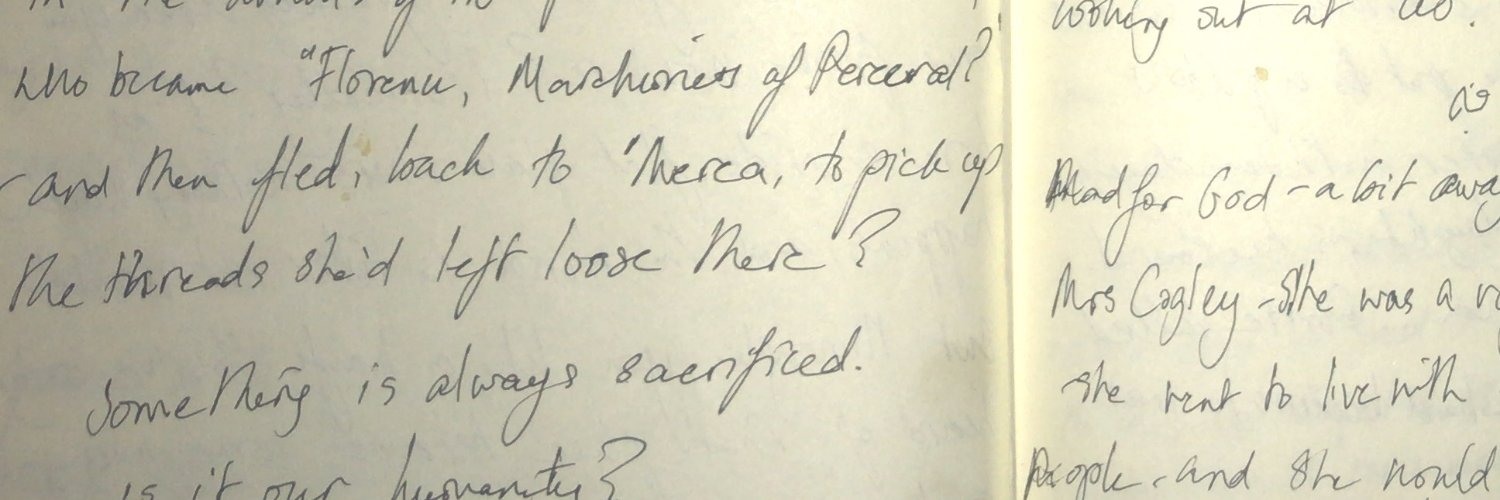 who became "Florence, Marchioness of Perceval?"
- and then fled, back to 'Merca, to pick up
the threads she'd left loose there?
Something is always sacrificed.
is it our humanity?
looking out at us.
is
Mad for God - a bit
Mrs Cogley - She was a
she went to live with
People - and she would